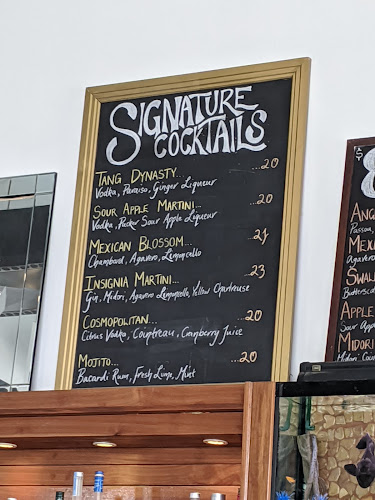 SIGNATURE
COCKTAILS
TANG DYNASTY... ...20
Vodka, Paraiso, Ginger Liqueur
SOUR APPLE MARTINI... ...20
Vodka, Pucker Sour Apple Liqueur
MEXICAN BLOSSOM... ...21
Chambord, Agavero, Lemoncello
INSIGNIA MARTINI... ...23
Gin, Midori, Agavero Lemoncello, Yellow Chartreuse
COSMOPOLITAN... ...20
Citrus Vodka, Cointreau, Cranberry Juice
MOJITO... ...20
Bacardi Rum, Fresh Lime, Mint
ANG
Passoa,
MEXI
Agavero
SWAL
Butterso
APPLE
Sour App
MIDORI
Midori, Coi